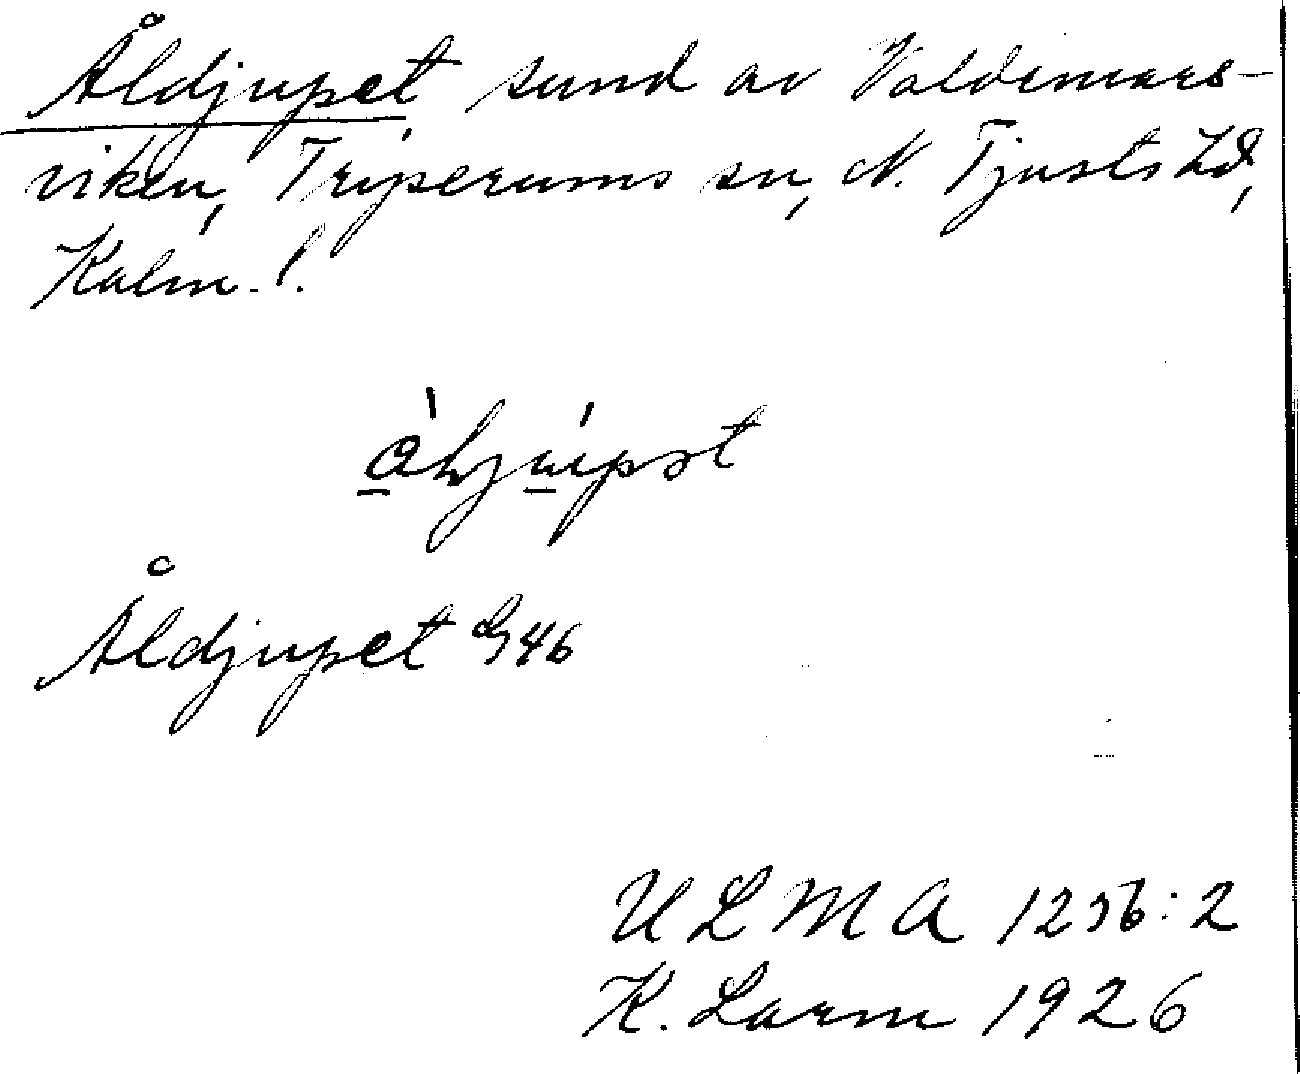 Åldjupet sund av Valdemars-
viken, Tryserums sn, N. Tjusts hd,
Kalm. l.
Åldjupet G 46
ULMA 1256:2
K. Larm 1926